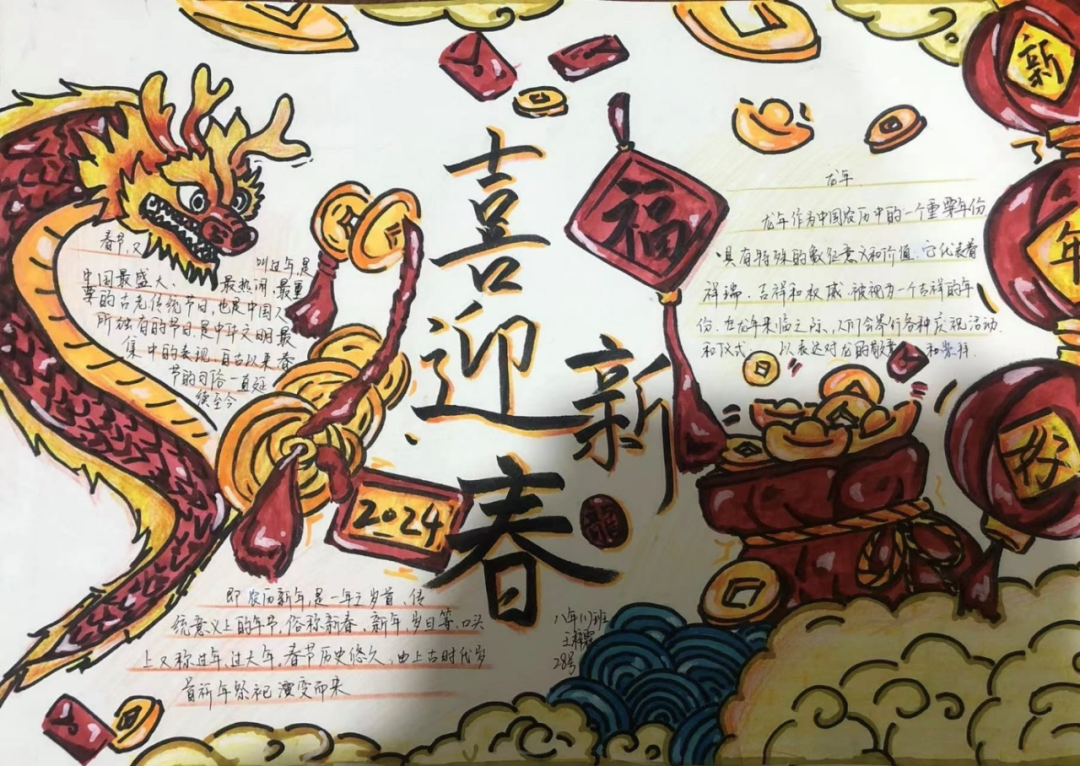 喜迎新春
福
2024
新
年
春节,又
叫过年是
中国最盛大、最热闹、最重
要的古老传统节日,也是中国人
所独有的节日是中华文明最
集中的表现,自古以来春
节的习俗一直延
续至今
龙年
龙年作为中国农历中的一个重要年份
具有特殊的象征意义和价值.它代表着
祥瑞、吉祥和权威.被视为一个吉祥的年
份.在龙年来临之际,人们会举行各种庆祝活动
和仪式 以表达对龙的敬意 和崇拜.
即农历新年,是一年之岁首、传
统意义上的年节,俗称新春、新年、岁日等,口头
上又称过年,过大年,春节历史悠久,由上古时代岁
首祈年祭祀演变而来
八年(1)班
28号